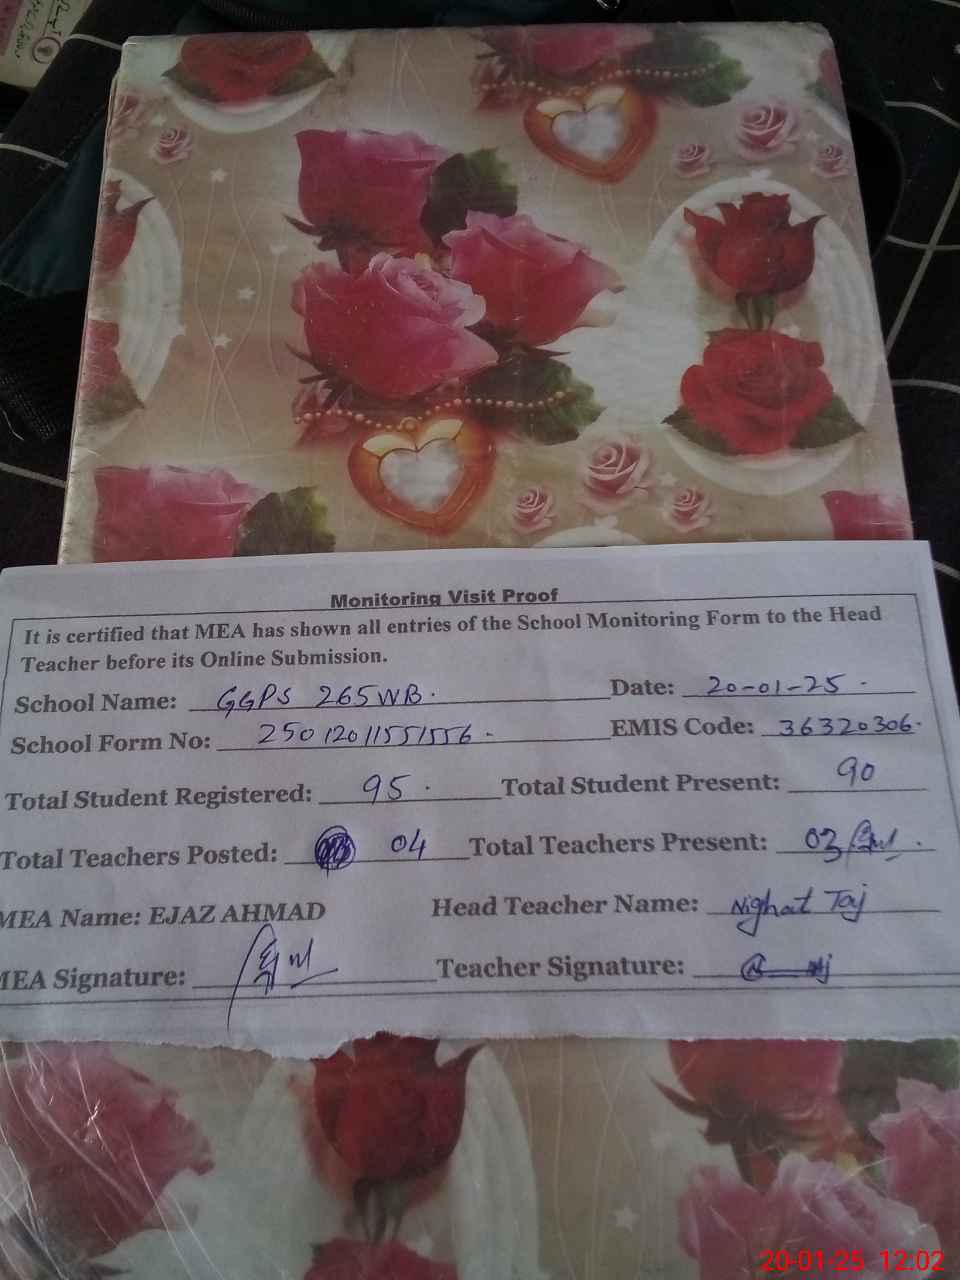 Monitoring Visit Proof
It is certified that MEA has shown all entries of the School Monitoring Form to the Head
Teacher before its Online Submission.
School Name: GGPS 265WB. Date: 20-01-25.
School Form No: EMIS Code: 36320306.
Total Student Registered: 95. Total Student Present: 90
Total Teachers Posted: 04 Total Teachers Present: 03
MEA Name: EJAZ AHMAD Head Teacher Name: Nighat Taj
MEA Signature: Teacher Signature:
20-01-25 12:02